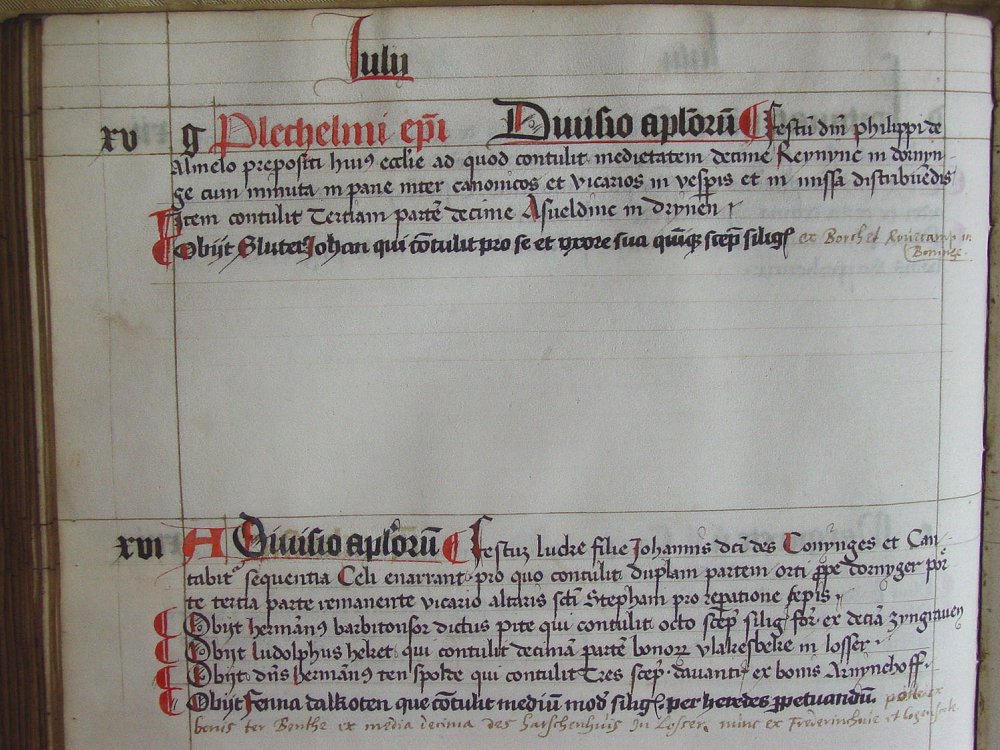 Iulij
xv g Plechelmi ep̄i Diuisio aplōrū Festū dn̄i philippi de
Almelo prepositi huiꝰ ecclie ad quod contulit medietatem decime Reynync in dornyn
ge cum minuta in pane inter canonicos et vicarios in vesp̄is et in missa distribuēdis
Item contulit Tertiam partē decime Asueldinc in drynen
Obijt Sluter Johan qui cōtulit pro se et vxore sua quīqꝫ scep̄ siliḡ ex Borchel in
xvi A Diuisio aplōrū Festuꝫ lucke filie Johannis dc̄i des Conynges et Can
tabit̄ sequentia Celi enarrant pro quo contulit duplam partem orti ꝓpe dornyger por
te tertia parte remanente vicario altaris sct̄i Stephani pro reꝑatione sepis
Obijt hermānꝰ barbitonsor dictus pite qui contulit octo scep̄ siliḡ for̄ ex decīa zyngrauen
Obijt ludolphus heket qui contulit decimā partē bonoꝝ vlakesbeke in losser
Obijt dn̄s hermānꝰ ten spolde qui contulit Tres scep̄ dauantr̄ ex bonis Arnynchoff
Obijt Fenna dalkoten que cōtulit mediū mod̄ siliḡ per heredes ꝑpetuandū
bonis ter Benthe ex media decima des hasschenhuis in Losser nunc ex et